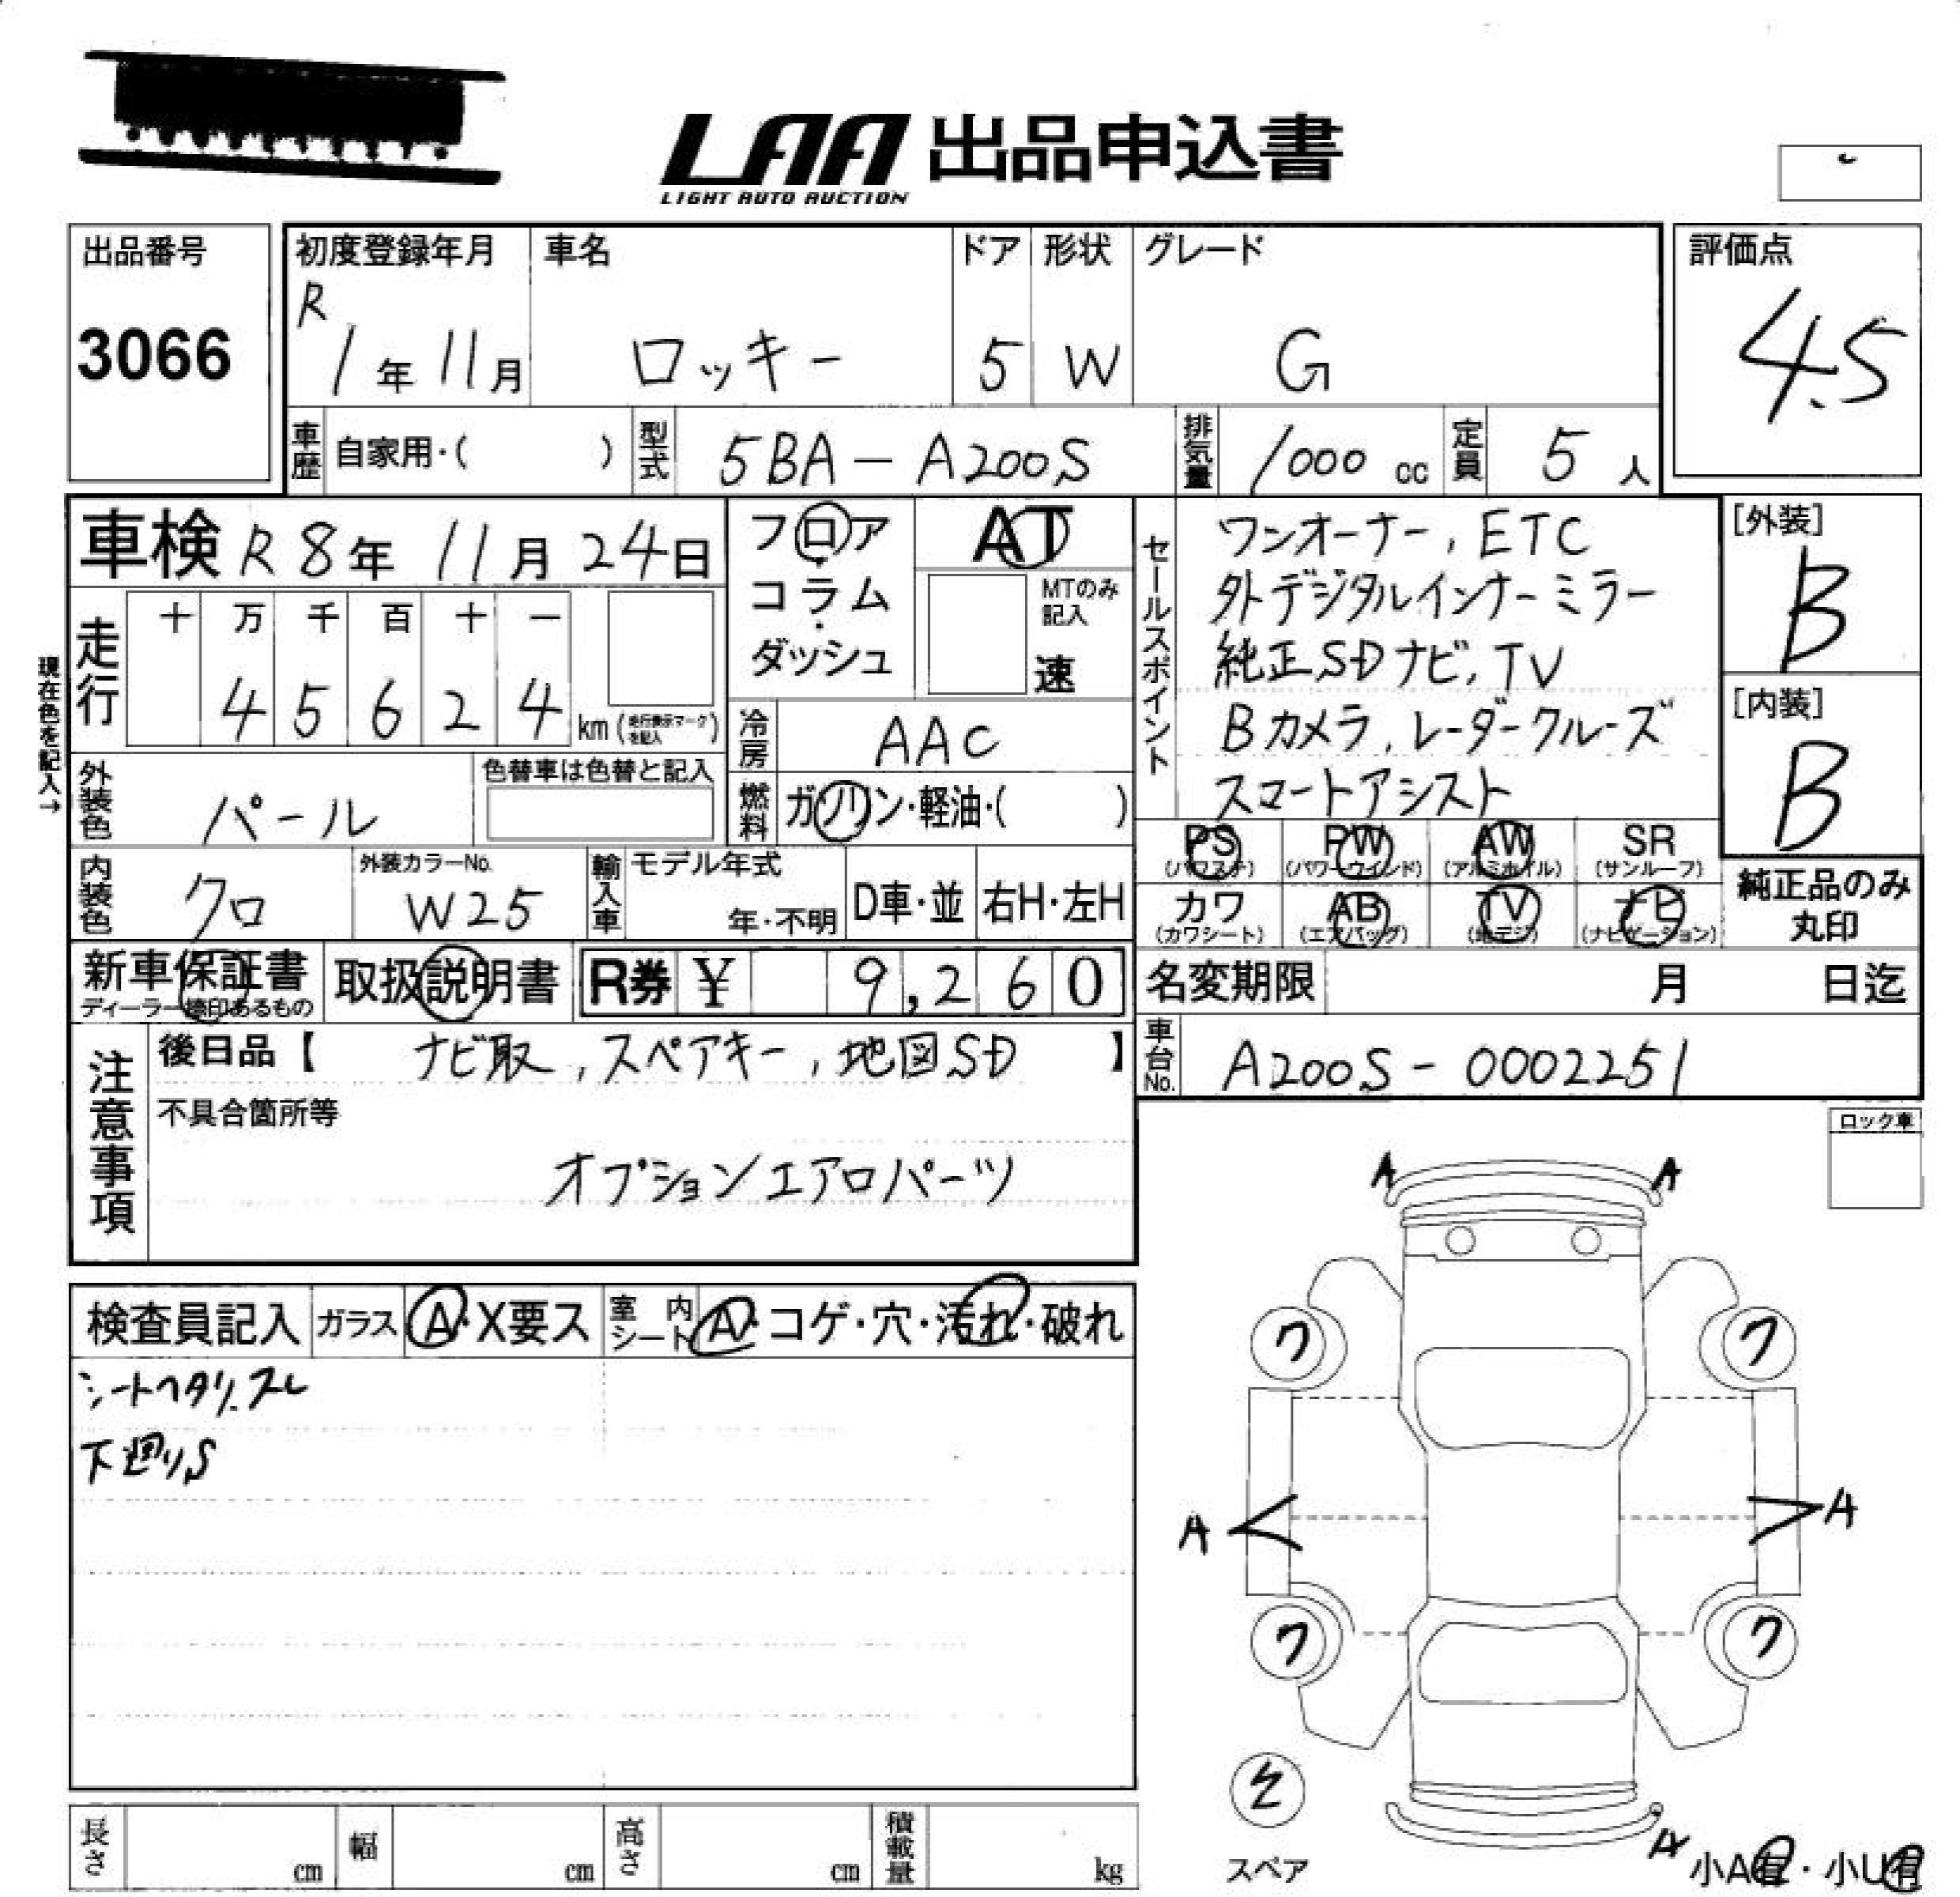 LAA 出品申込書
LIGHT AUTO AUCTION
出品番号
3066
初度登録年月
R
1年 11月
車名
ロッキー
ドア
5
形状
W
グレード
G
評価点
4.5
車歴 自家用・( )
型式 5BA-A200S
排気量 1000 cc
定員 5人
車検 R8年 11月 24日
フロア・コラム・ダッシュ
AT
MTのみ記入
速
セールスポイント
ワンオーナー, ETC
外デジタルインナーミラー
純正SDナビ, TV
Bカメラ, レーダークルーズ
スマートアシスト
[外装]
B
[内装]
B
現在色を記入→
走行
十 万 千 百 十 一
4 5 6 2 4 km (走行表示マークを記入)
冷房 AAC
外装色 パール
色替車は色替と記入
燃料 ガソリン・軽油・( )
PS (パワステ)
PW (パワーウインド)
AW (アルミホイル)
SR (サンルーフ)
カワ (カワシート)
AB (エアバッグ)
TV (地デジ)
ナビ (ナビゲーション)
純正品のみ
丸印
内装色 クロ
外装カラーNo.
W25
輸入車 モデル年式
年・不明
D車・並 右H・左H
新車保証書
ディーラー捺印あるもの
取扱説明書
R券 ¥ 9,260
名変期限 月 日迄
注意事項
後日品【 ナビ取, スペアキー, 地図SD 】
不具合箇所等
オプションエアロパーツ
車台No. A200S-0002251
ロック車
検査員記入
ガラス A・X要ス
室内シート A・コゲ・穴・汚れ・破れ
シートヘタリ、スレ
下廻りS
A A
ワ ワ
A A
ワ ワ
スペア
A
小A有・小U有
長さ cm
幅 cm
高さ cm
積載量 kg